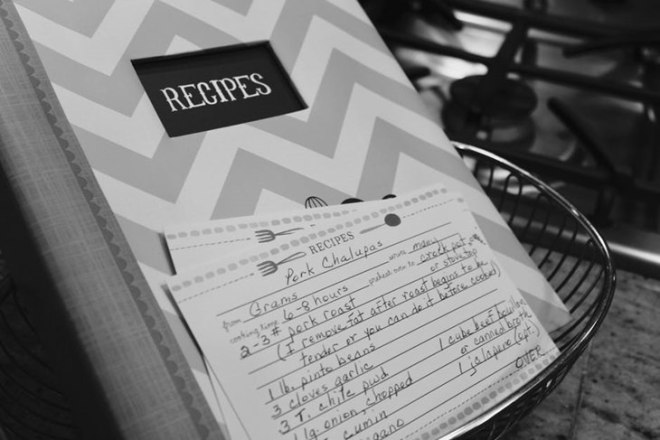 RECIPES
RECIPES
Pork Chalupas
from Grams serves many
cooking time 6-8 hours preheat oven to crock pot,
or stovetop
2-3# pork roast
(I remove fat after roast begins to be
tender or you can do it before cooked)
1 lb. pinto beans
3 cloves garlic 1 cube beef bouillon
3 T. chile pwd or canned broth
1 lg. onion, chopped 1 jalapeno (opt.)
cumin OVER